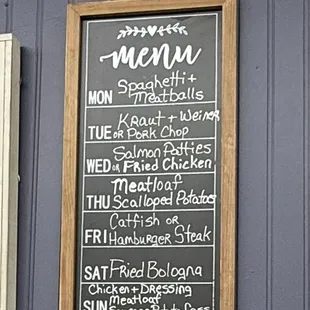 menu
MON Spaghetti +
Meatballs
Kraut + Weiner
TUE or Pork Chop
Salmon Patties
WED or Fried Chicken
Meatloaf
THU Scalloped Potatoes
Catfish or
FRI Hamburger Steak
SAT Fried Bologna
Chicken + Dressing
Meatloaf
SUN